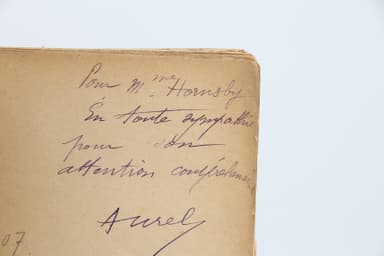 Pour Mme Hornsby
En toute sympathie
pour son
attention
Aurel
07